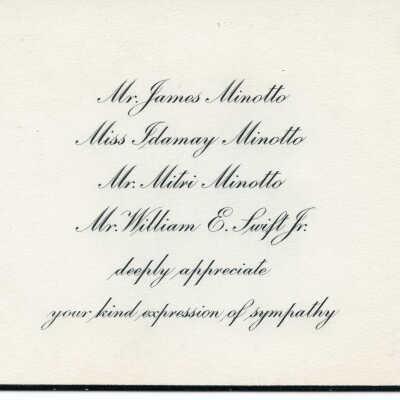 Mr. James Minotto
Miss Idamay Minotto
Mr. Mitri Minotto
Mr. William E. Swift Jr.
deeply appreciate
your kind expression of sympathy